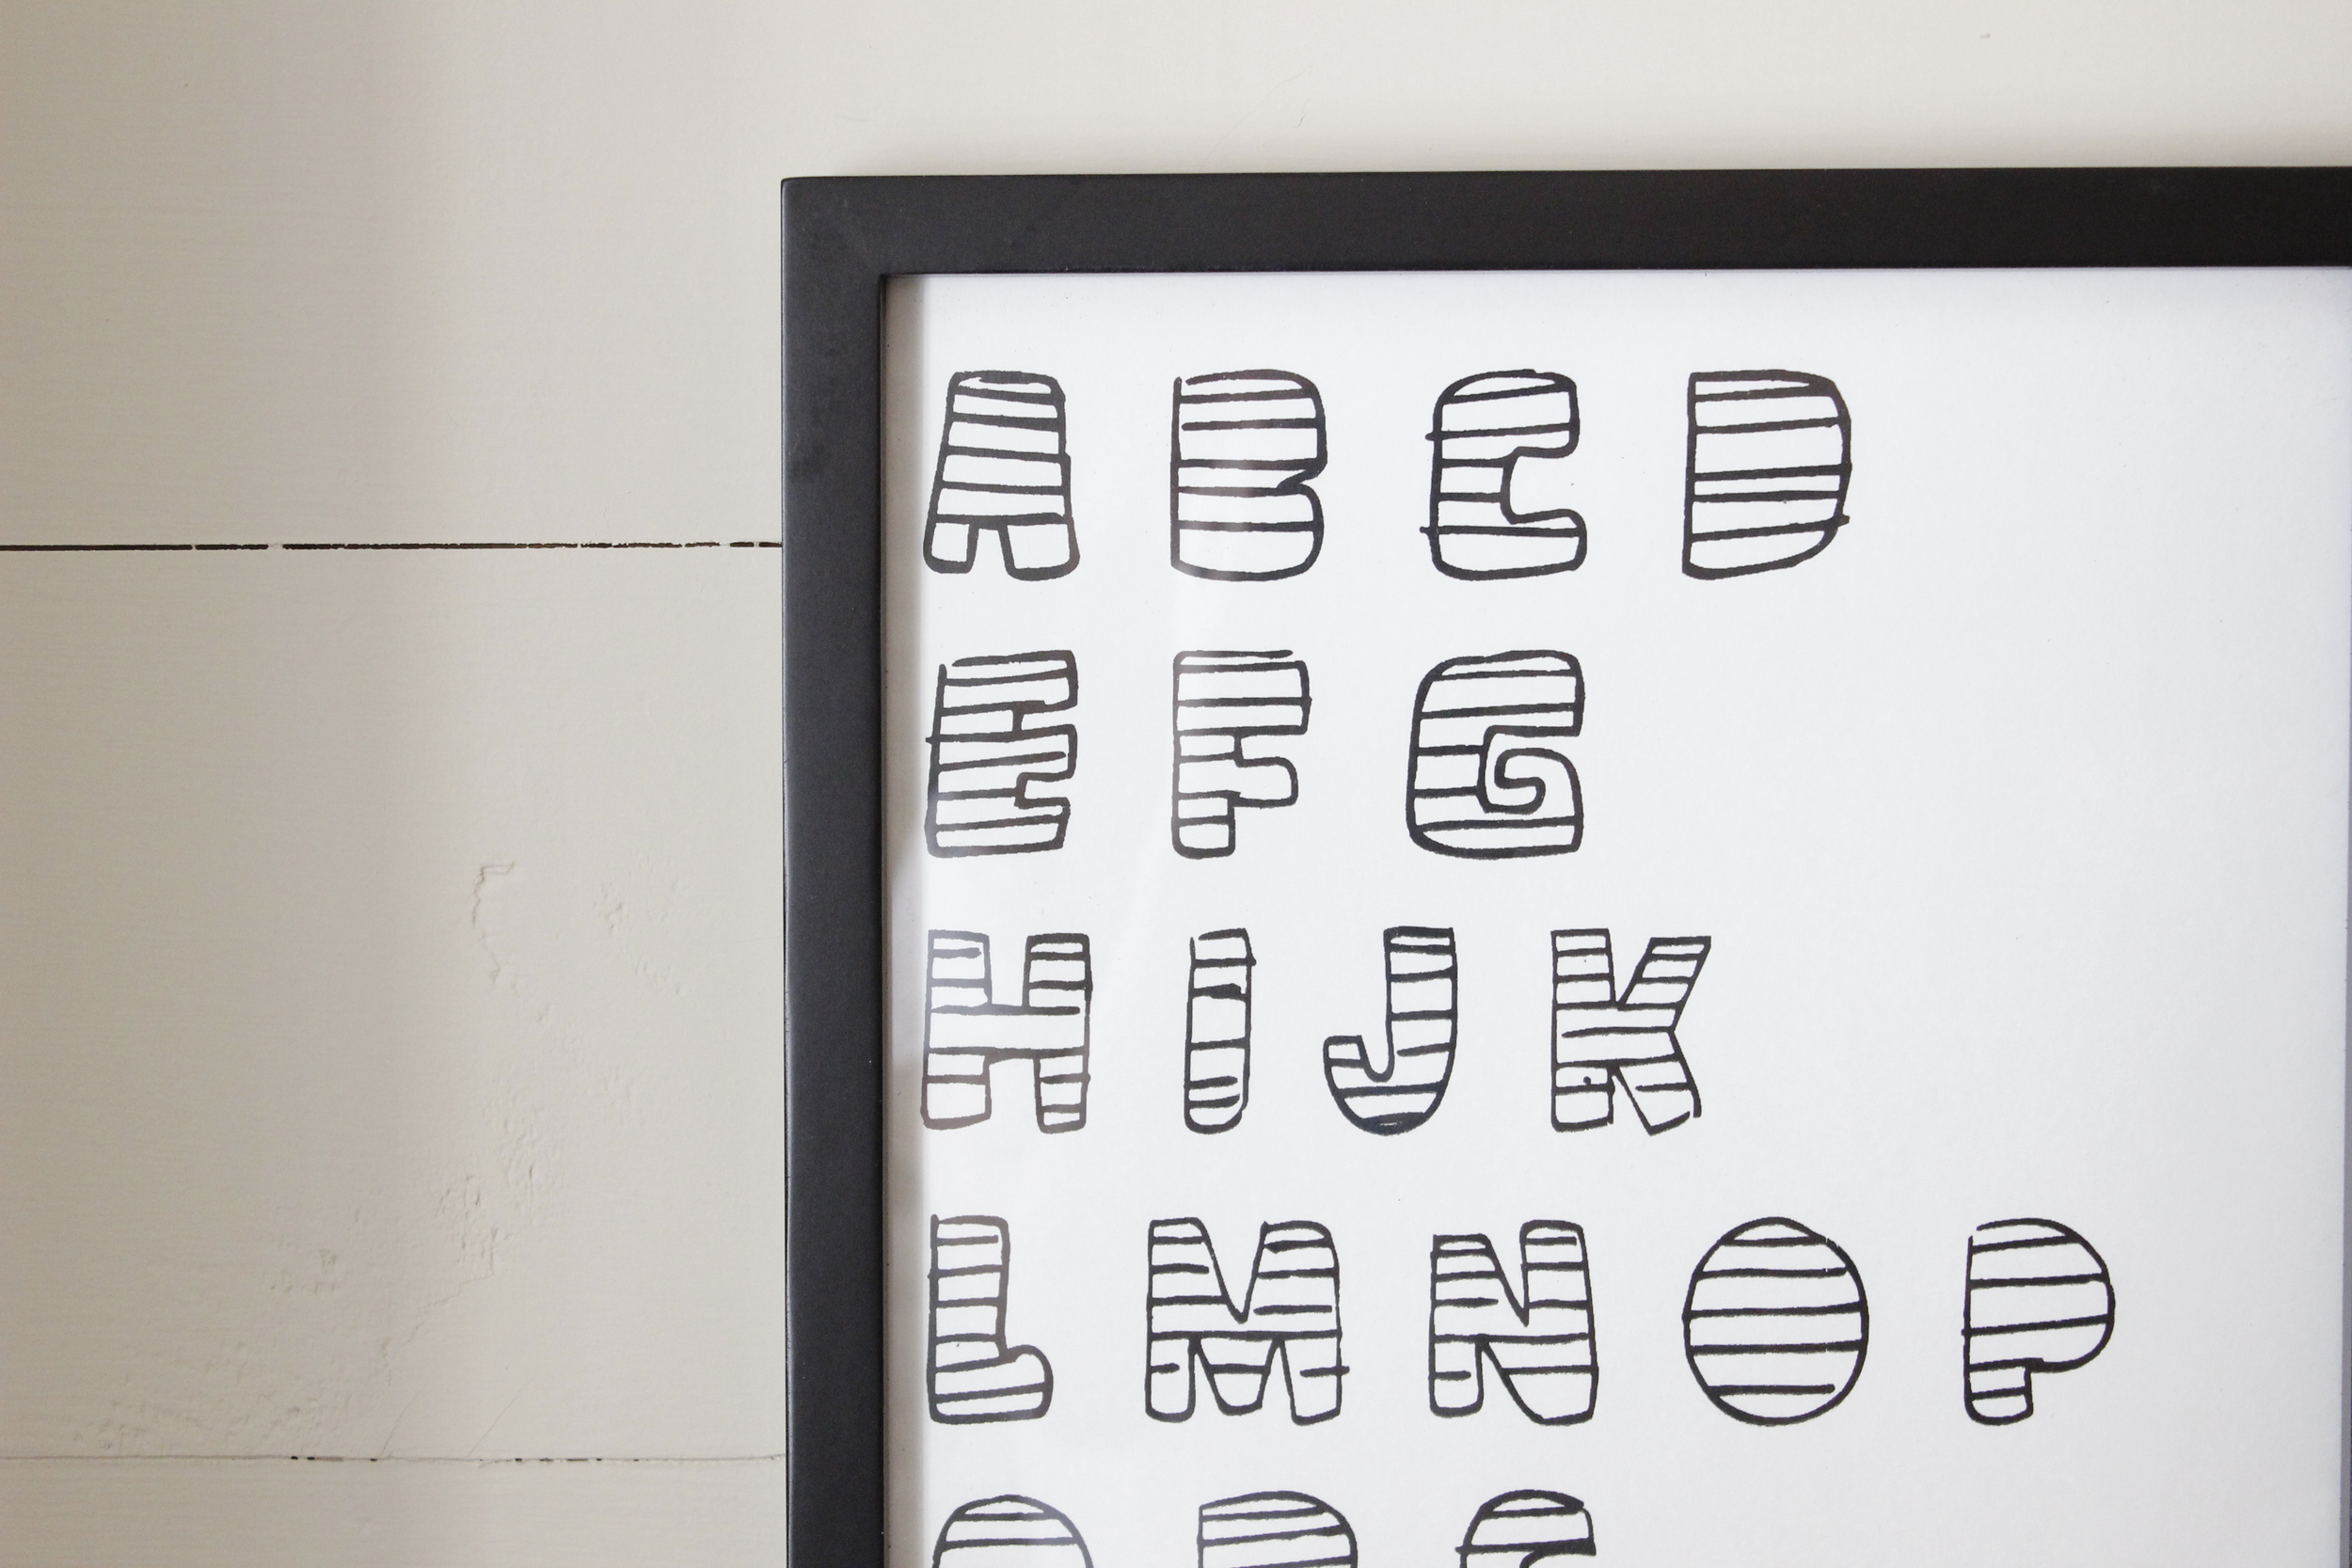 A B C D
E F G
H I J K
L M N O P
Q R S